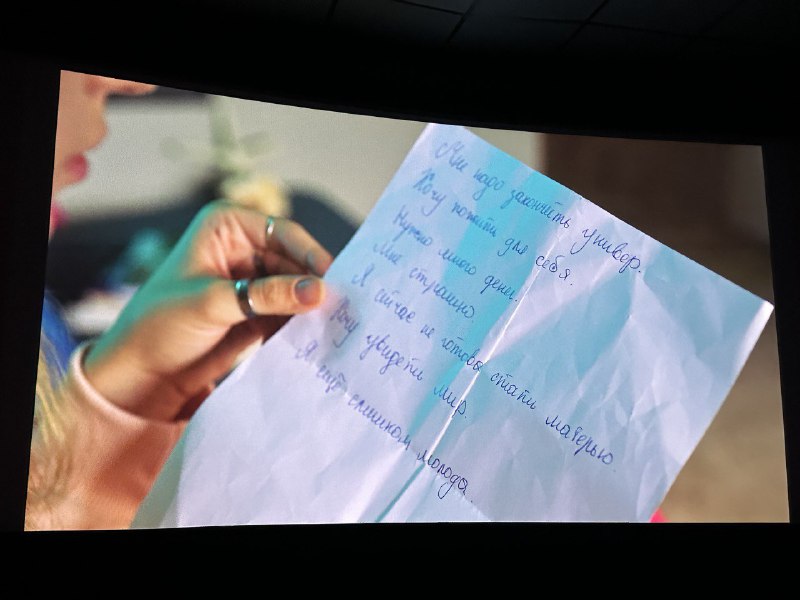 Мне надо закончить универ.
Хочу пожить для себя.
Нужно много денег.
Мне страшно.
Я сейчас не готова стать матерью.
Хочу увидеть мир.
Я ещё слишком молода.